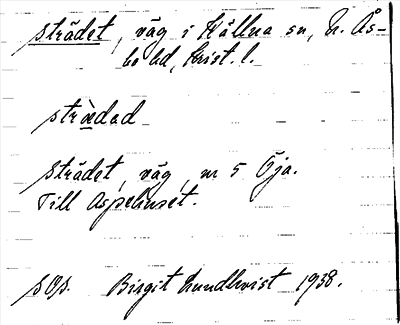 strädet, väg i Hållna sn, N. Ås-
bo hd, Krist. l.
strä̀dad
Strädet, väg, nr 5 Öja.
Till Aspehuset.
s Op. Birgit Lundkvist 1938.